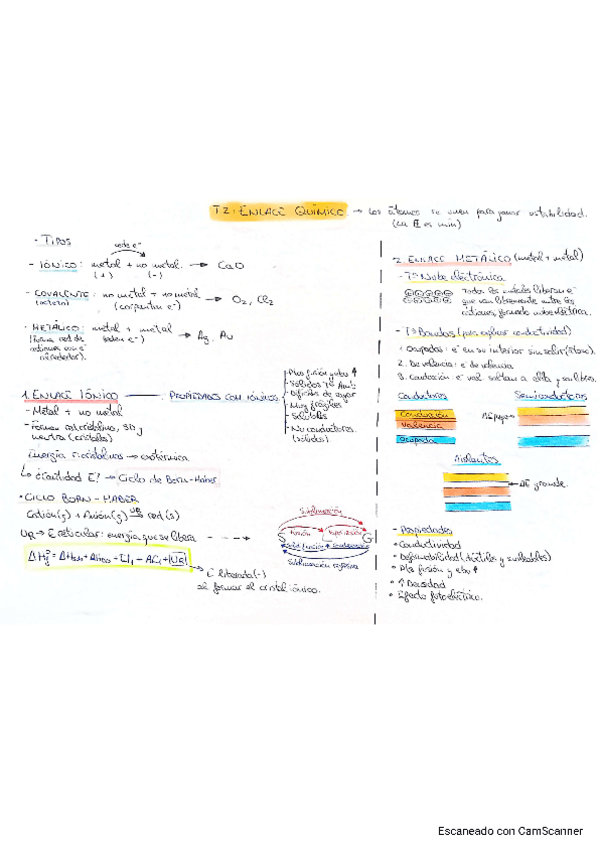 T2: ENLACE QUÍMICO → Los átomos se unen para ganar estabilidad.
(su E es mín)
- TIPOS
cede e⁻
- IÓNICO: metal + no metal. → CaO
(+) (-)
- COVALENTE: no metal + no metal → O₂, Cl₂
(comparten e⁻)
- METÁLICO: metal + metal → Ag, Au
(ceden e⁻)
(forma red de
cationes con e⁻
alrededor).
1. ENLACE IÓNICO → PROPIEDADES COMP. IÓNICOS
- Metal + no metal
- Forman estructuras 3D y
neutra (cristales)
- Ptos fusión y ebu ↑
- Sólidos Tª Amb
- Difíciles de rayar
- Muy frágiles
- Solubles
- No conductores
(sólidos)
Energía → exotérmica
↳ ¿Cantidad E? → Ciclo de Born-Haber
• CICLO BORN-HABER
Catión(g) + Anión(g) → red (s)
UR
UR → E reticular: energía que se libera
E liberada (-)
al formar el cristal iónico.
Sublimación
fusión
S L G
solidificación condensación
Sublimación regresiva
2. ENLACE METÁLICO (metal + metal)
- Tª Nube electrónica
Todos los metales liberan e⁻
que van libremente entre los
cationes, formando nube eléctrica.
- Tª Bandas (para explicar conductividad)
1. Ocupadas: e⁻ en su interior sin salir
2. De valencia: e⁻ de valencia
3. Conducción: e⁻ val. saltan a ella y son libres.
Conductores Semiconductores
Conducción
Valencia
Ocupada
Aislantes
ΔE grande.
- Propiedades
• Conductividad
• Deformabilidad (dúctiles y maleables)
• Ptos fusión y ebu ↑
• ↑ Densidad
• Efecto fotoeléctrico.
Escaneado con CamScanner